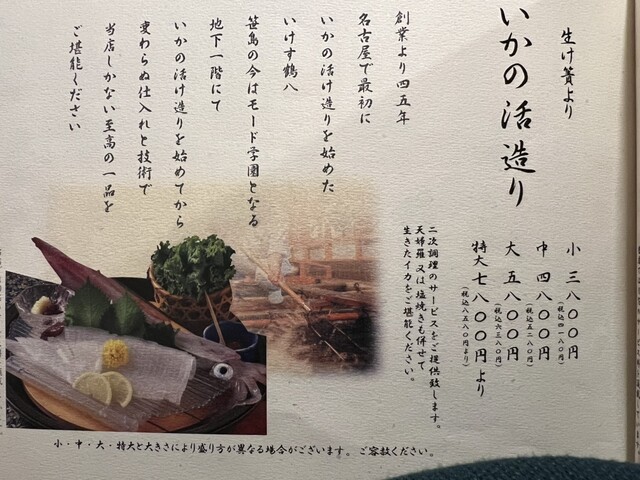 生け簀より
いかの活造り
小 三八〇〇円
(税込四一八〇円)
中 四八〇〇円
(税込五二八〇円)
大 五八〇〇円
(税込六三八〇円)
特大 七八〇〇円より
(税込八五八〇円より)
二次調理のサービスをご提供致します。
天婦羅又は塩焼きも併せて
生きたイカをご堪能ください。
創業より四五年
名古屋で最初に
いかの活け造りを始めた
いけす鶴八
笹島の今はモード学園となる
地下一階にて
いかの活け造りを始めてから
変わらぬ仕入れと技術で
当店しかない至高の一品を
ご堪能ください
小・中・大・特大と大きさにより盛り方が異なる場合がございます。ご容赦ください。